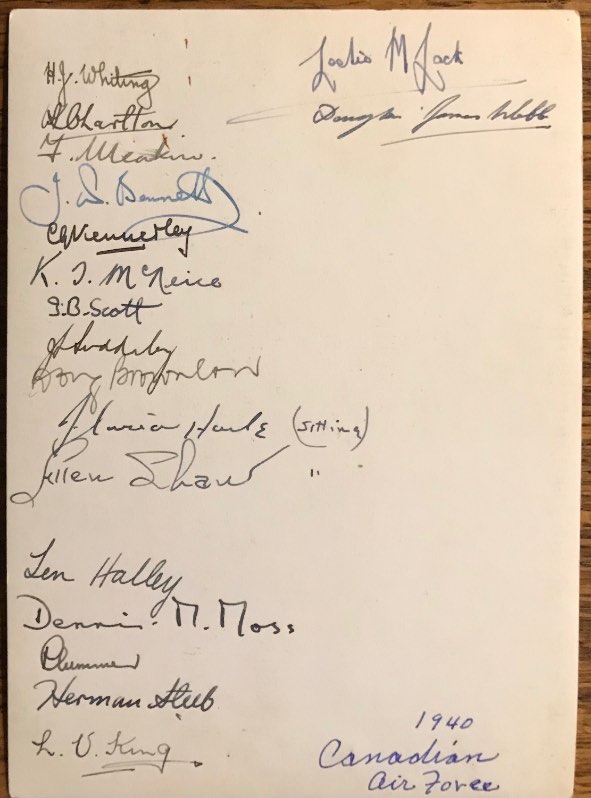 H.J. Whiting
Charlton
F. Meakin.
J. S. Bennett
Kennerley
K. J. McNeice
J.B. Scott
Suddaby
Doug Brownlow
Gloria Houle (sitting)
Ellen Shaw "
Len Halley
Dennis. M. Moss
Plummer
Herman Steeb
L. V. King.
Leslie M Jack
Douglas James Webb
1940
Canadian
Air Force